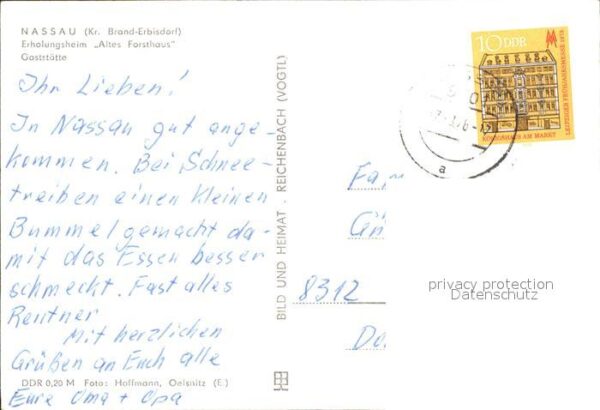 NASSAU (Kr. Brand-Erbisdorf)
Erholungsheim „Altes Forsthaus"
Gaststätte
Ihr Lieben!
In Nassau gut ange-
kommen. Bei Schnee-
treiben einen kleinen
Bummel gemacht da-
mit das Essen besser
schmeckt. Fast alles
Rentner
Mit herzlichen
Grüßen an Euch alle
DDR 0,20 M Foto: Hoffmann, Oelsnitz (E.)
Eure Oma + Opa
BILD UND HEIMAT · REICHENBACH (VOGTL)
10 DDR
LEIPZIGER FRÜHJAHRSMESSE 1978
KÖNIGSHAUS AM MARKT
a
Fa
8312
privacy protection
Datenschutz